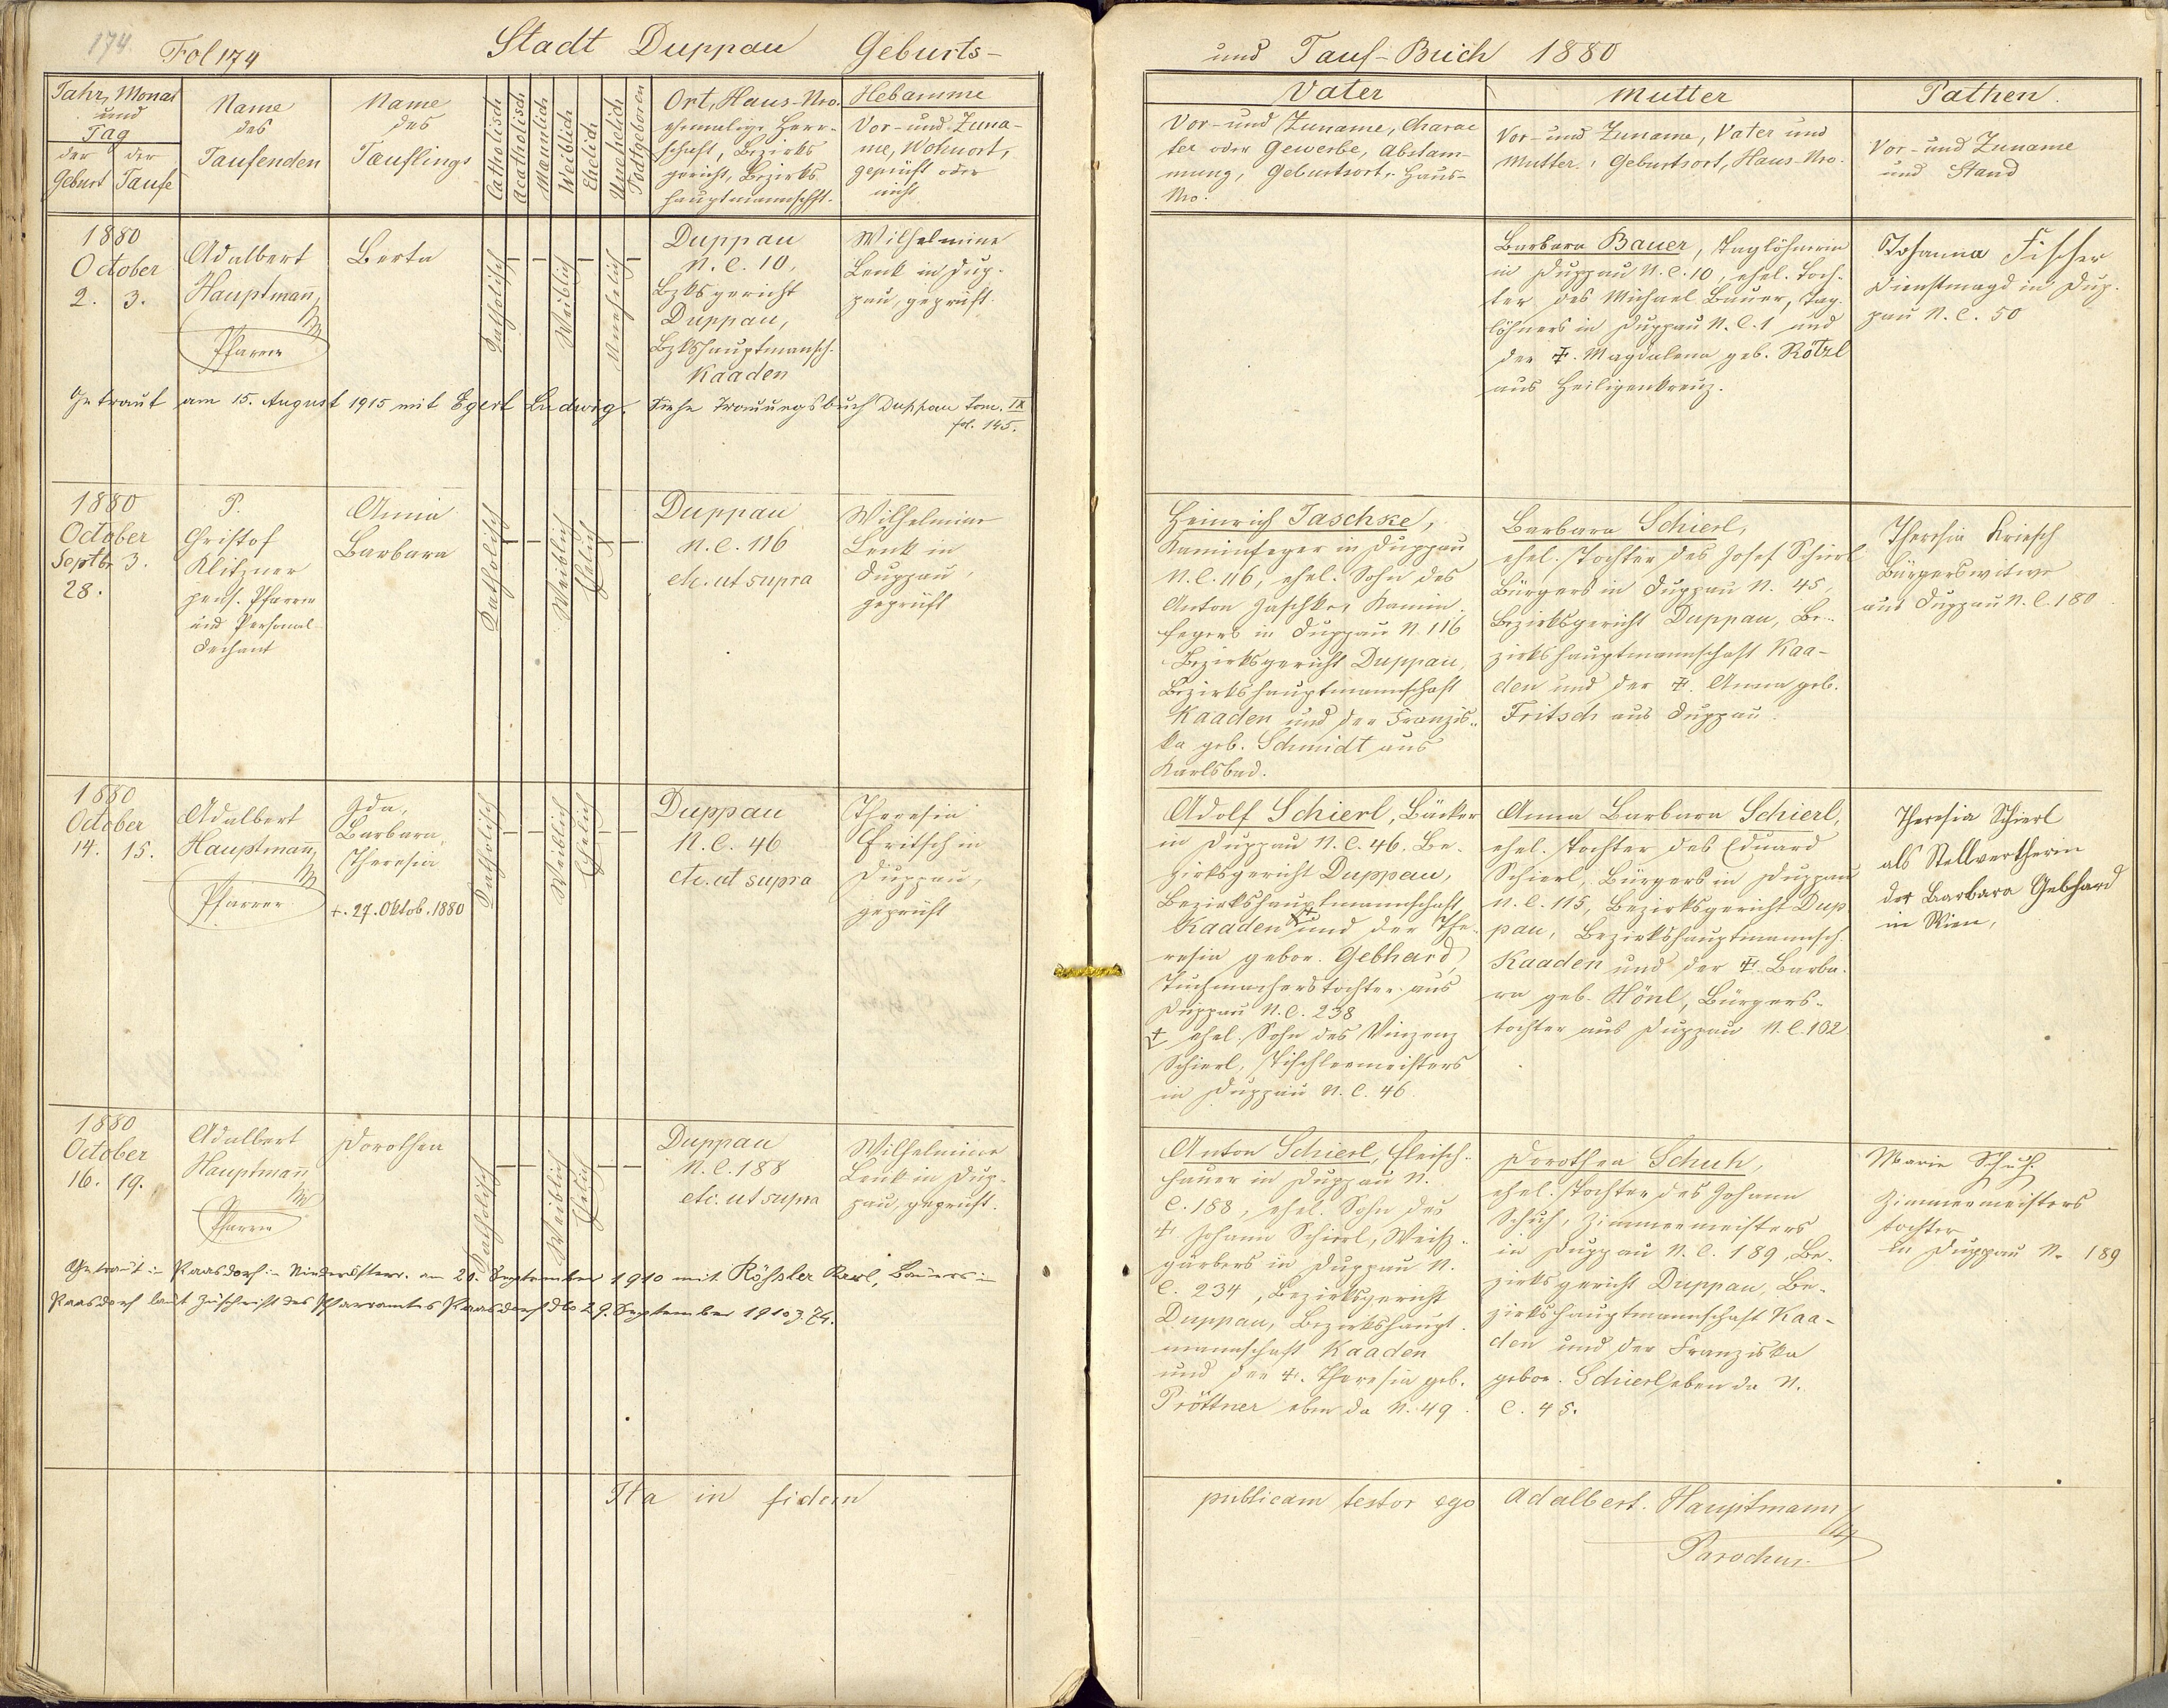 174.
Fol 174
Stadt Duppau Geburts-
Jahr, Monat
und
Tag
der der
Geburt Taufe
Name
des
Taufenden
Name
des
Täuflings
Catholisch
Acatholisch
Männlich
Weiblich
Ehelich
Unehelich
Todtgeboren
Ort, Haus-Nro.
ehemalige Herr-
schaft, Bezirks
gericht, Bezirks
hauptmannschft.
Hebamme
Vor- und Zuna-
me, Wohnort,
geprüft oder
nicht
1880
October
2. 3.
Adalbert
Hauptmann,
Pfarrer
Berta
Katholisch
Weiblich
Unehelich
Duppau
N. C. 10,
Bzksgericht
Duppau,
Bzkshauptmansch.
Kaaden
Wilhelmine
Lenk in Dup-
pau, geprüft.
Getraut am 15. August 1915 mit Egerl Ludwig. Siehe Trauungsbuch Duppau tom. IX
fol. 145.
1880
October
Septbr 3.
28.
P.
Christof
Klitzner
pens. Pfarrer
und Personal-
Dechant
Anna
Barbara
Katholisch
Weiblich
Ehelich
Duppau
N. C. 116
etc. ut supra
Wilhelmine
Lenk in
Duppau,
geprüft
1880
October
14. 15.
Adalbert
Hauptmann,
Pfarrer
Ida,
Barbara,
Theresia
+. 27. Oktob. 1880
Katholisch
Weiblich
Ehelich
Duppau
N. C. 46
etc. ut supra
Theresia
Fritsch in
Duppau,
geprüft
1880
October
16. 19.
Adalbert
Hauptmann
Pfarrer
Dorothea
Katholisch
Weiblich
Ehelich
Duppau
N. C. 188
etc. ut supra
Wilhelmine
Lenk in Dup-
pau, geprüft.
Getraut in Raasdorf in Niederösterr. am 20. September 1910 mit Rößler Karl, Bauers in
Raasdorf laut Zuschrift des Pfarramtes Raasdorf dto 29. September 1910 Z. 74.
Ita in fidem
und Tauf-Buch 1880
Vater
Vor- und Zuname, Charac
ter oder Gewerbe, Abstam-
mung, Geburtsort, Haus-
Nro.
Mutter
Vor- und Zuname, Vater und
Mutter, Geburtsort, Haus-Nro.
Pathen.
Vor- und Zuname
und Stand
Barbara Bauer, Taglöhnerin
in Duppau N. C. 10, ehel. Toch-
ter des Michael Bauer, Tag-
löhners in Duppau N. C. 1 und
der +. Magdalena geb. Rötzl
aus Heiligenkreuz.
Johanna Fischer
Dienstmagd in Dup-
pau N. C. 50
Heinrich Jaschke,
Kaminfeger in Duppau
N. C. 116, ehel. Sohn des
Anton Jaschke, Kamin-
fegers in Duppau N. 116
Bezirksgericht Duppau,
Bezirkshauptmannschaft
Kaaden und der Franzis-
ka geb. Schmidt aus
Karlsbad.
Barbara Schierl,
ehel. Tochter des Josef Schierl
Bürgers in Duppau N. 45,
Bezirksgericht Duppau, Be-
zirkshauptmannschaft Kaa-
den und der +. Anna geb.
Fritsch aus Duppau.
Theresia Kriesch
Bürgerswitwe
aus Duppau N. C. 180
Adolf Schierl, Bäcker
in Duppau N. C. 46. Be-
zirksgericht Duppau,
Bezirkshauptmannschaft
Kaaden + und der The-
resia gebor. Gebhard,
Tuchmacherstochter aus
Duppau N. C. 238
+ ehel. Sohn des Vinzenz
Schierl, Tischlermeisters
in Duppau N. C. 46
Anna Barbara Schierl,
ehel. Tochter des Eduard
Schierl, Bürgers in Duppau
N. C. 115, Bezirksgericht Dup
pau, Bezirkshauptmannsch.
Kaaden und der +. Barba-
ra geb. Hönl, Bürgers-
tochter aus Duppau N. C. 102
Theresia Schierl
als Stellvertherin
der Baarbara Gebhard
in Wien,
Anton Schierl, Fleisch-
hauer in Duppau N.
C. 188, ehel. Sohn des
+. Johann Schierl, Weiß-
gärbers in Duppau N.
C. 234, Bezirksgericht
Duppau, Bezirkshaupt-
mannschaft Kaaden
und der +. Theresia geb.
Pröttner eben da N. 49.
Dorothea Schuh,
ehel. Tochter des Johann
Schuh, Zimmermeisters
in Duppau N. C. 189, Be-
zirksgericht Duppau, Be-
zirkshauptmannschaft Kaa-
den und der Franziska
gebor. Schierl eben da N.
C. 45.
Marie Schuh.
Zimmermeisters
tochter
in Duppau N. 189
publicam testor ego Adalbert. Hauptmann
Parochus